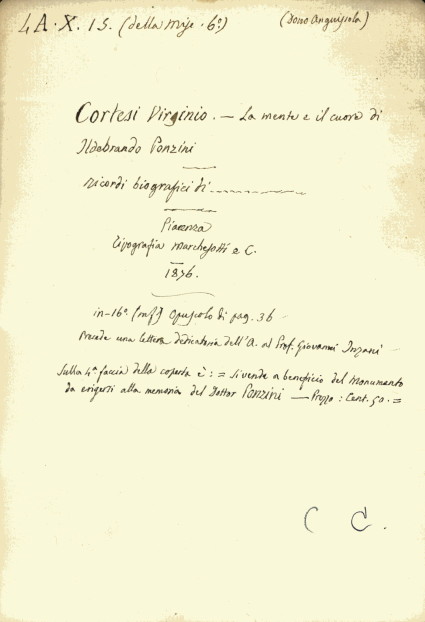 4A. X. 15. (della Misc. 6ª) (Dono Anguissola)
Cortesi Virginio. — La mente e il cuore di
Ildebrando Ponzini
ricordi biografici di
Piacenza
Tipografia Marchesotti e C.
1876.
in-16º. Opuscolo di pag. 36
Precede una lettera dedicatoria dell'A. al Prof. Giovanni Inzani
Sulla 4ª faccia della coperta è : = Si vende a beneficio del Monumento
da erigersi alla memoria del Dottor Ponzini — Prezzo : Cent. 50. =
C C.